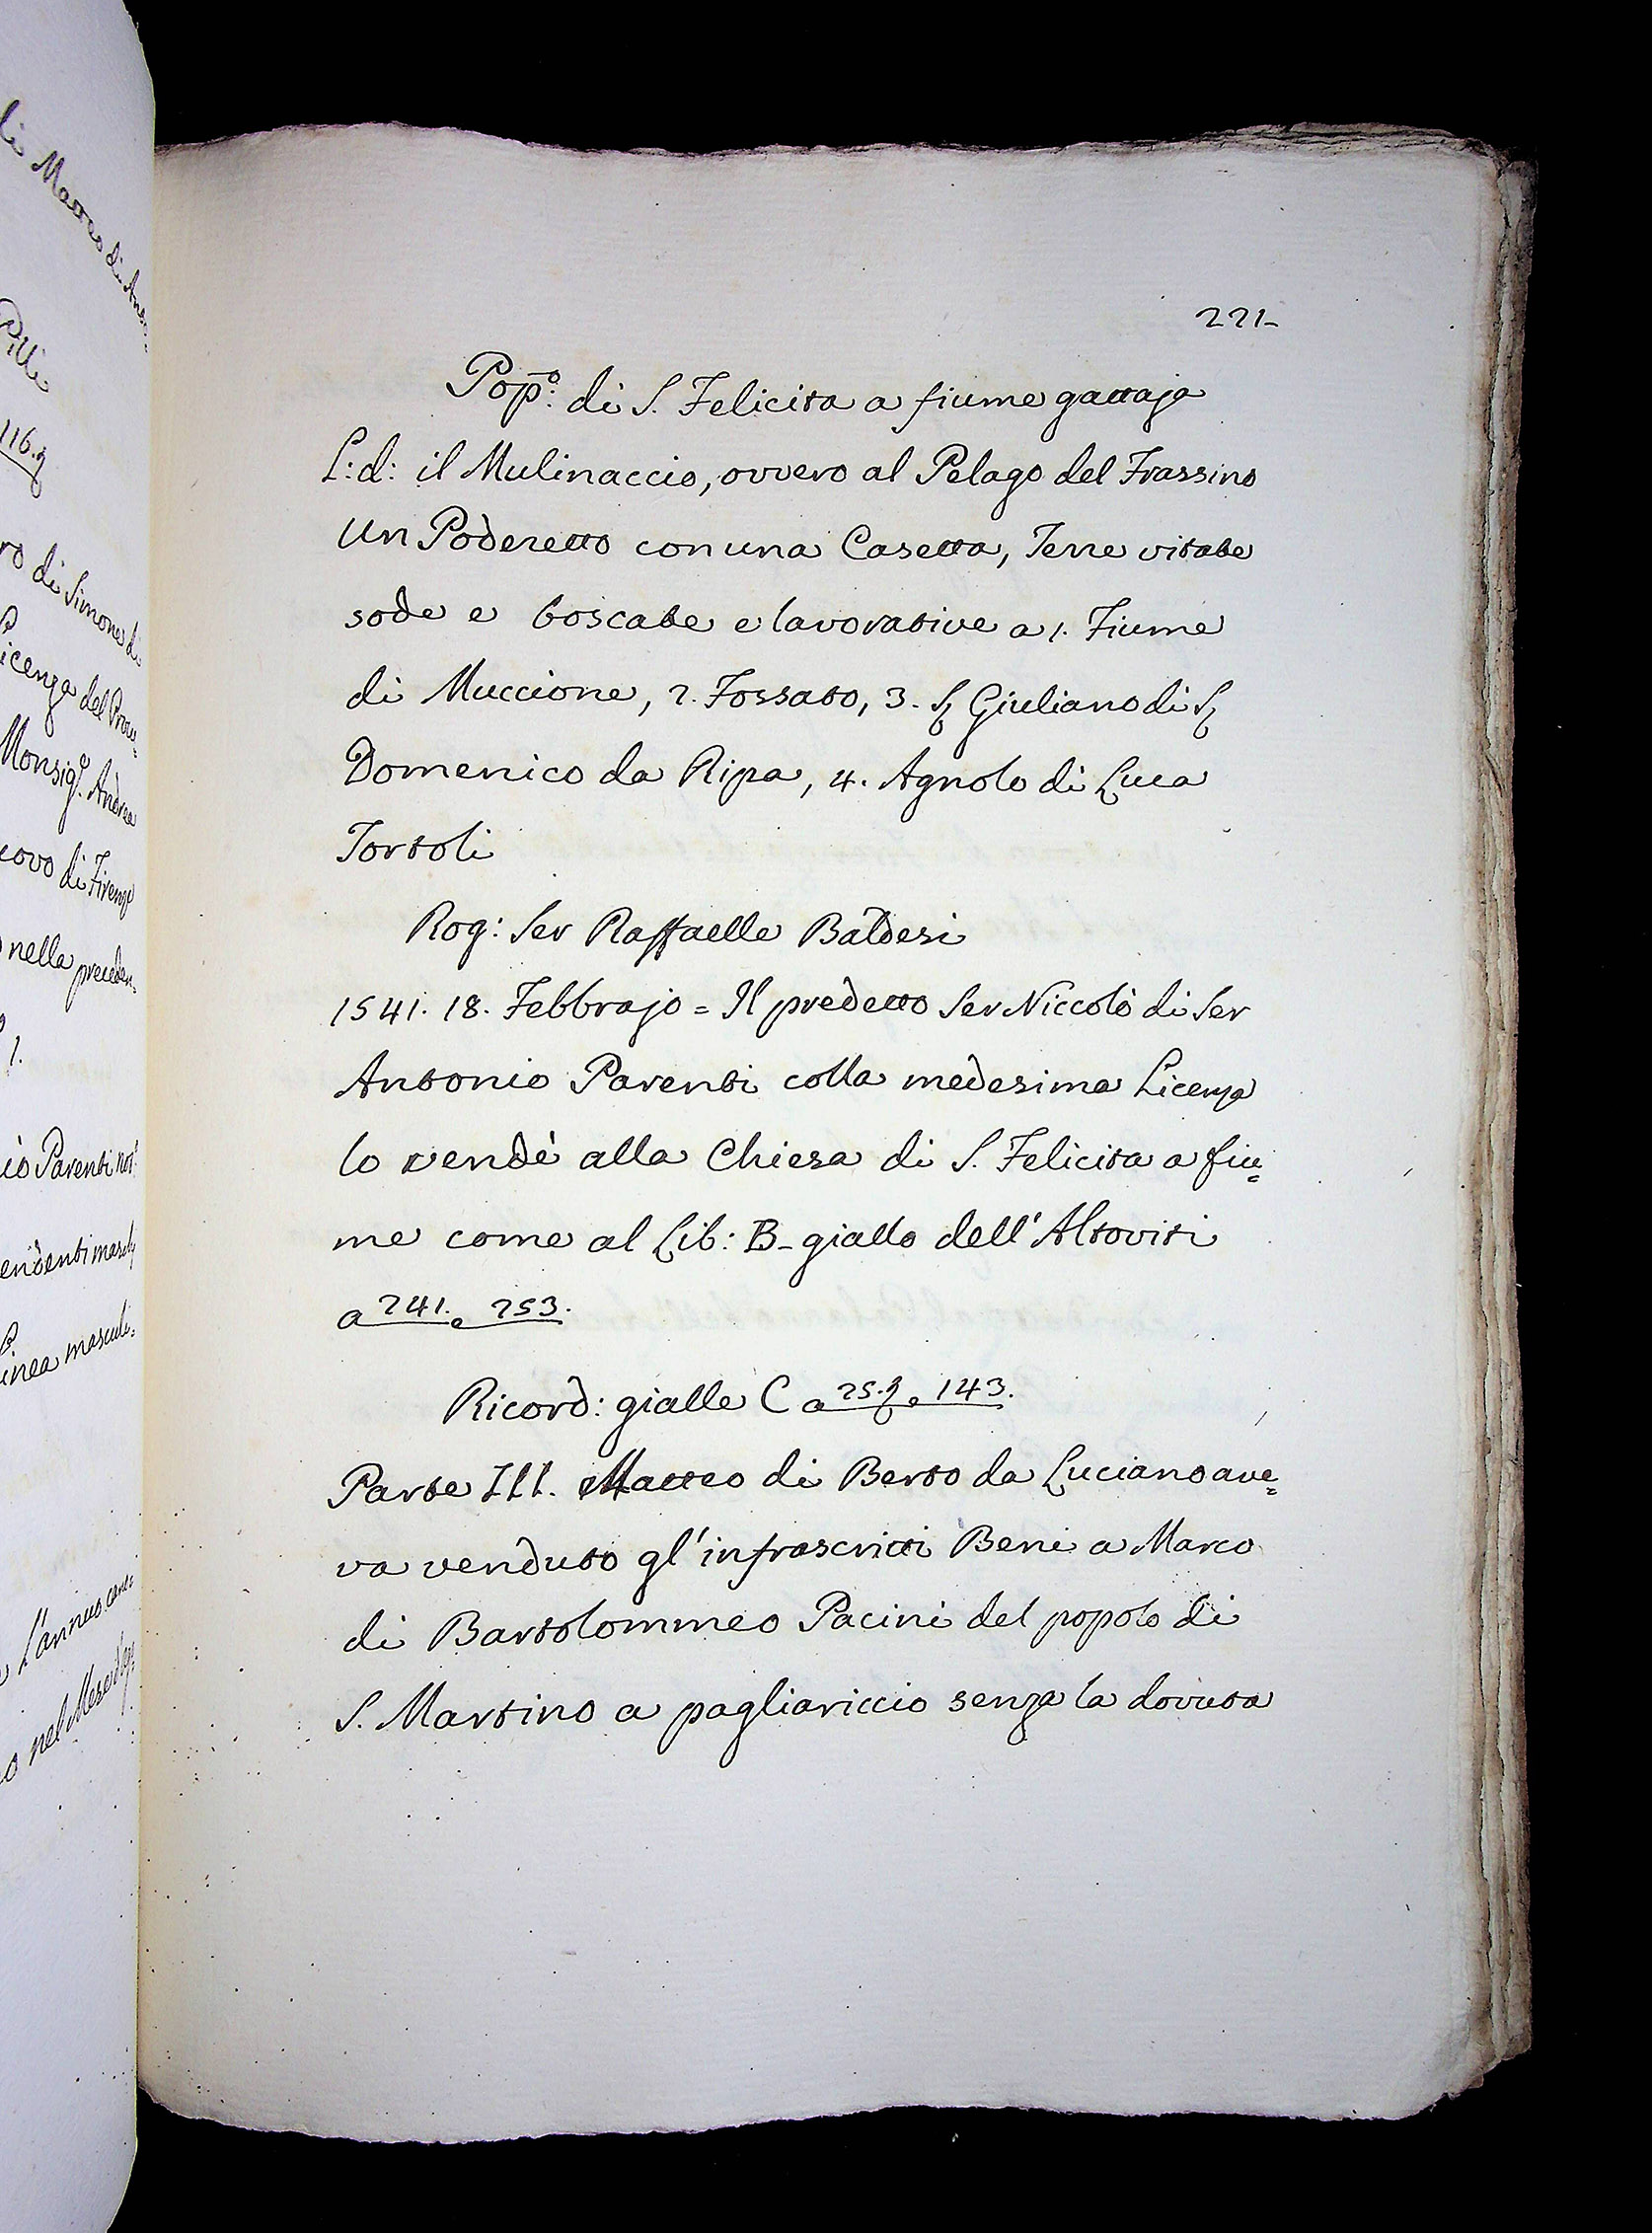 li Marco di An
Pilli
116.
ro di Simone di
icenza del Prou=
Monsig.r Andrea
covo di Firenze
nella preceden=
1.
io Parenti not.
endenti masch
inea masculi=
L'annuo cano=
o nel Mese d'
221-
Pop.o: di S. Felicita a fiume gattaja
L: d: il Mulinaccio, ovvero al Pelago del Frassino
Un Poderetto con una Casetta, Terre vitate
sode e boscate e lavorative a 1. Fiume
di Muccione, 2. Fossato, 3. S. Giuliano di S.
Domenico da Ripa, 4. Agnolo di Luca
Tortoli
Rog: Ser Raffaelle Baldesi
1541. 18. Febbrajo = Il predetto Ser Niccolò di Ser
Antonio Parenti colla medesima Licenza
lo vendè alla Chiesa di S. Felicita a fiu=
me come al Lib: B- giallo dell'Altoviti
a 241. e 253.
Ricord: gialle C a 25. e 143.
Parte III. Matteo di Berto da Luciano ave=
va venduto gl'infrascritti Beni a Marco
di Bartolommeo Pacini del popolo di
S. Martino a pagliariccio senza la dovuta